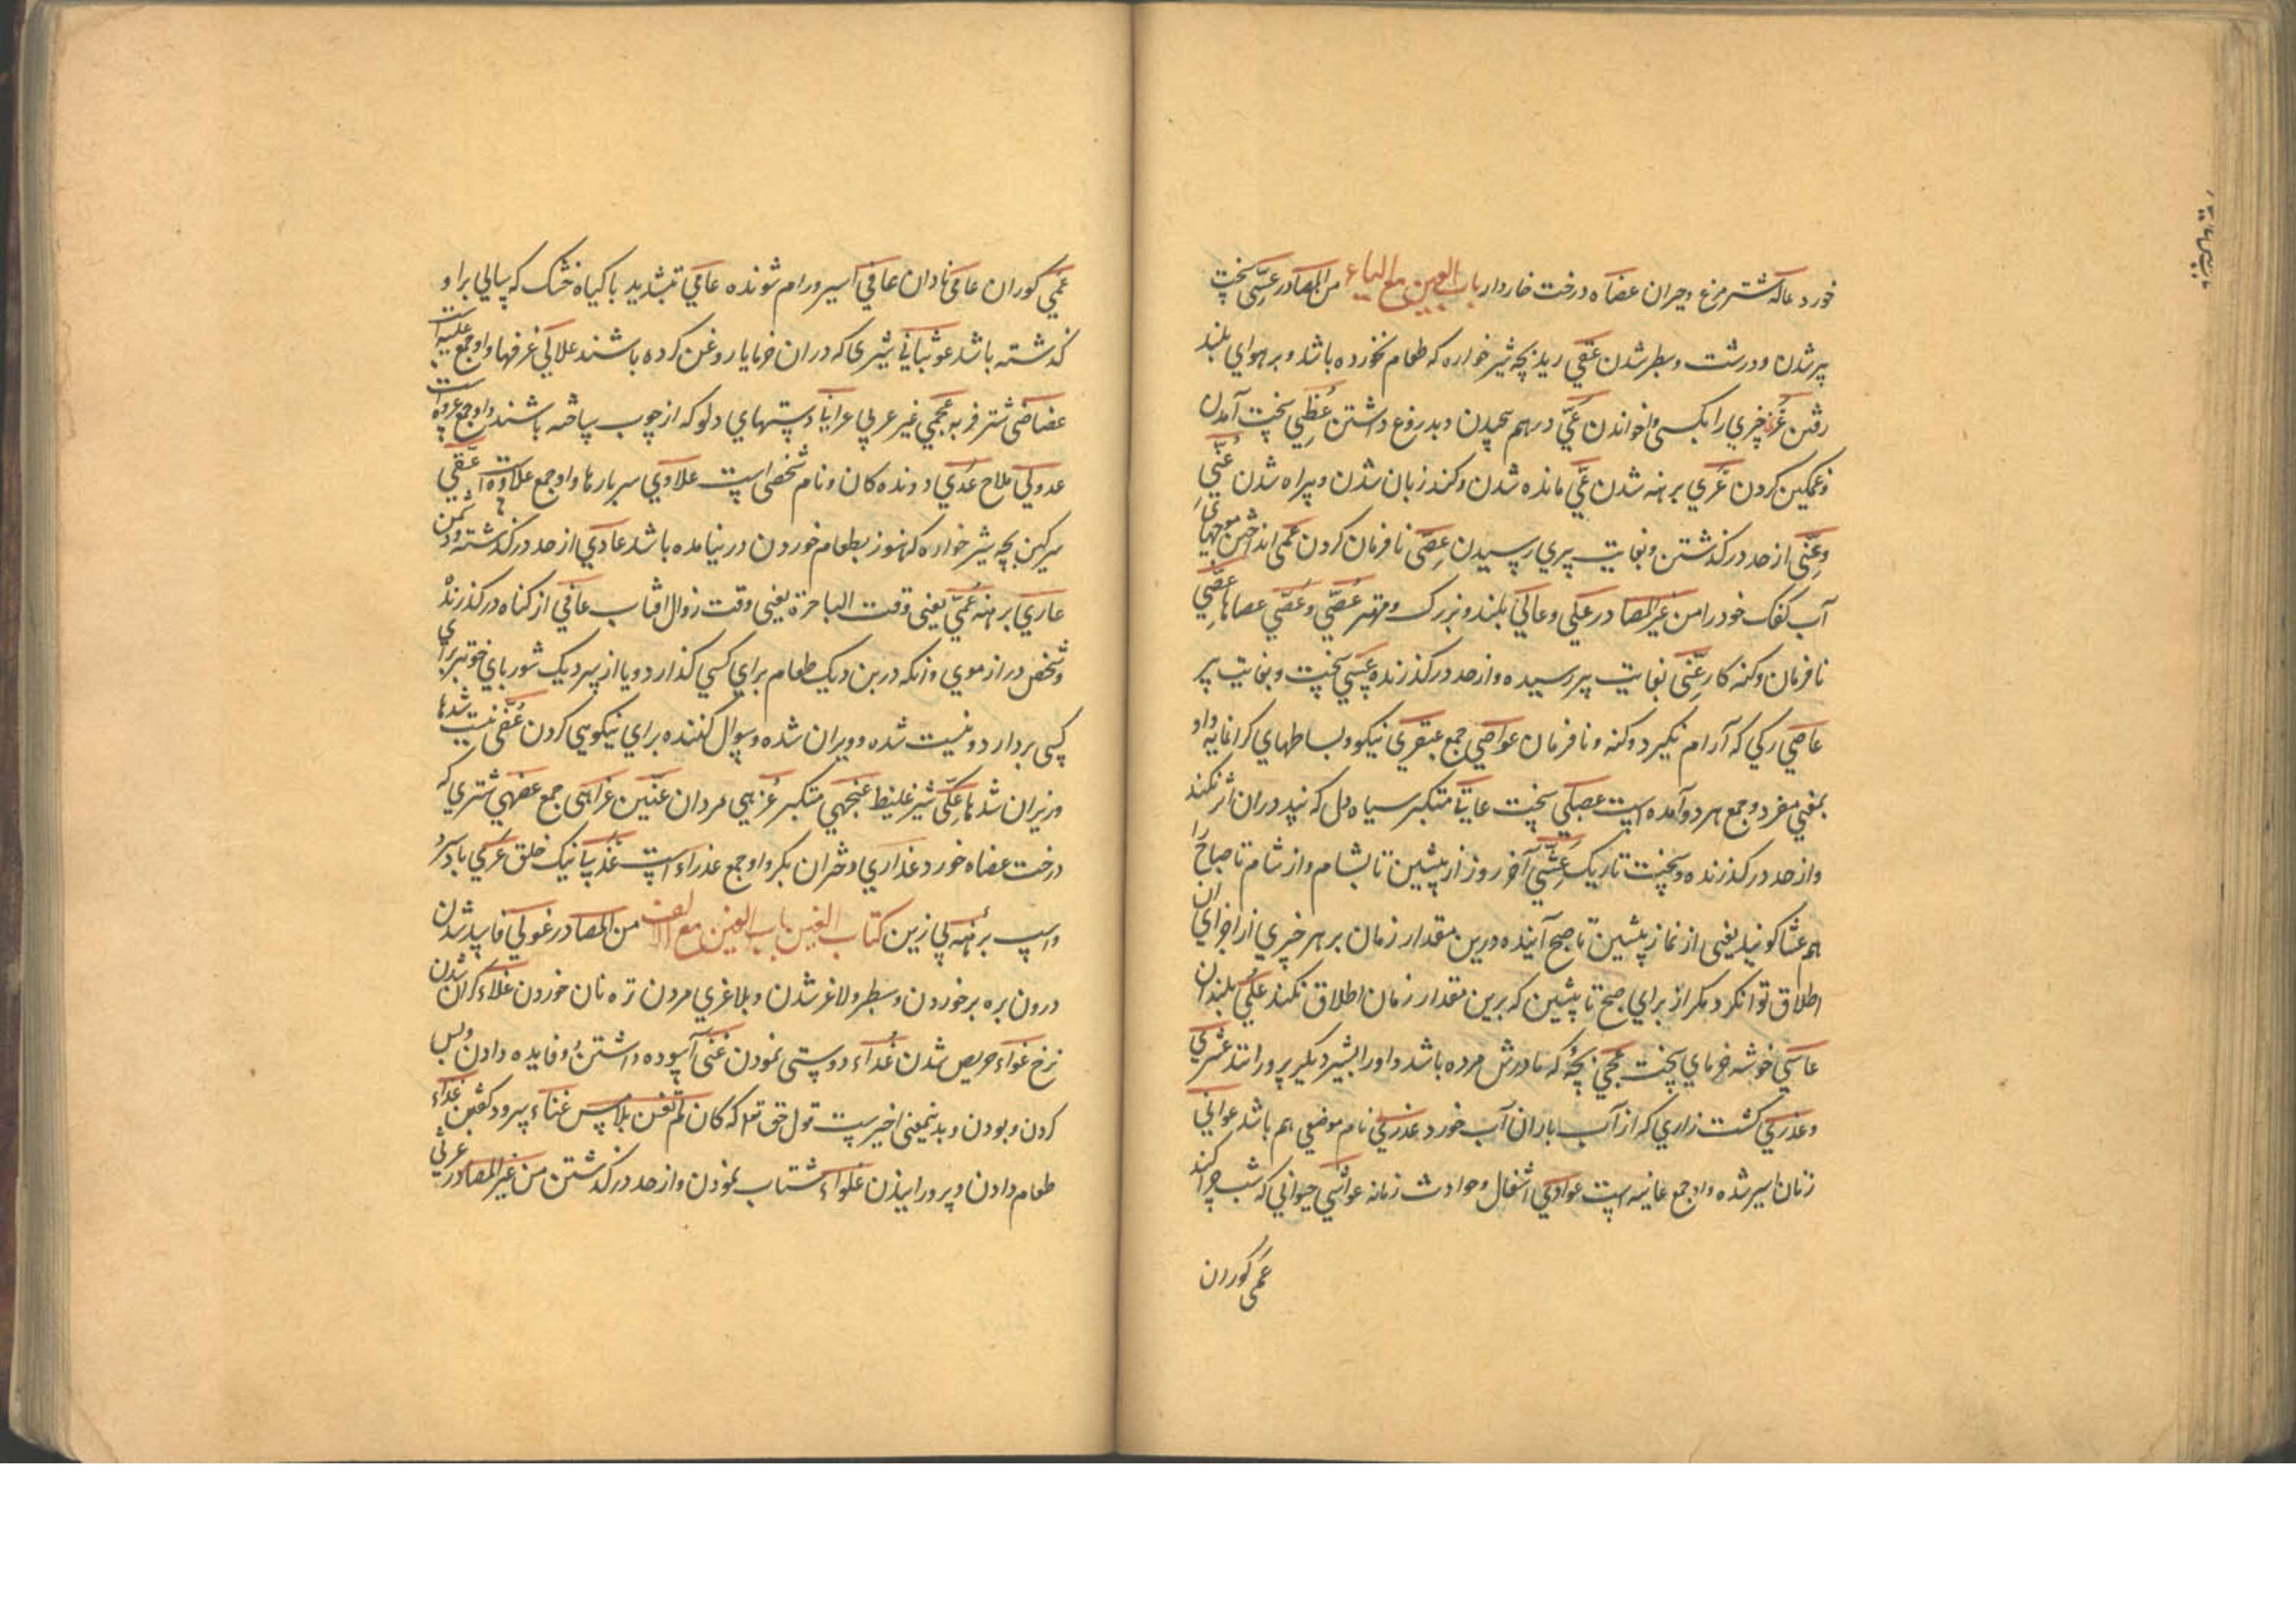 خورد عاله شترمرغ و حیران عضاه درخت خاردار باب العین مع الیاء من المصادر عسی سخت
پیر شدن و درشت و سطبر شدن عقی ریدن بچه شیرخواره که طعام نخورده باشد و بر هوای بلند
رفتن عزی چیزی را بکسی واخواندن عی درهم پیچیدن و بدروغ داشتن عظی سخت آمدن
و غمگین کردن عری برهنه شدن عی مانده شدن و کند زبان شدن و بیراه شدن عتی
و عتی از حد درگذشتن و بغایت پیری رسیدن عصی نافرمان کردن عمی انداختن موجهای
آب کفک خود را من غیر المصادر علی و عالی بلند و بزرگ و مهتر عصی و عصی عصاها عصی
نافرمان و کنه کار عتی بغایت پیر رسیده و از حد درگذرنده عسی سخت و بغایت پیر
عاصی رکی که آرام نگیرد و کنه و نافرمان عواصی جمع عبقری نیکو و بساطهای کرانمایه و او
بمعنی مفرد و جمع هر دو آمده است عصلبی سخت عاتی متکبر سیاه دل که پند در ان اثر نکند
و از حد درگذرنده و سخت تاریک عشی آخر روز از پیشین تا بشام و از شام تا صباح را
هم عشا گویند یعنی از نماز پیشین تا صبح آینده درین مقدار زمان بر هر جزی از اجزای ان
اطلاق توان کرد مکر از برای صبح تا پیشین که برین مقدار زمان اطلاق نکنند علی بلندان
عاسی خوشه خرمای سخت عجی بچه که مادرش مرده باشد و او را بشیر دیگر پرورانند عثری
و عذی کشت زاری که از آب باران آب خورد عذی نام موضعی هم باشد عوانی
زنان اسیر شده و او جمع عانیه است عوادی اشغال و حوادث زمانه عواشی حیوانی که شب چرا کند
عمی کوران
عمی کوران عامی نادان عانی اسیر و رام شونده عامی بتشدید با کیاه خشک که سالی براو
گذشته باشد عوثبانی شیری که دران خرما یا روغن کرده باشند علالی غرفها و او جمع علیه است
عضاضی شتر فربه عجمی غیر عربی عراقی دستهای دلو که از چوب ساخته باشند و او جمع عرقوه است
عدولی ملاح عدی دونده کان و نام شخصی است علاوی سربارها و او جمع علاوه است عقی
سرکین بچه شیرخواره که هنوز بطعام خوردن در نیامده باشد عادی از حد درگذشته و دشمن
عاری برهنه عمی یعنی وقت الهاجرة یعنی وقت زوال افتاب عافی از کناه درگذرنده
و شخص دراز موی و انکه در بن دیک طعام برای کسی گذارد و یا از سر دیک شوربای خوبتر برای
کسی بردارد و نیست شده و ویران شده و سوال کننده برای نیکویی کردن عفی نیست شدها
و زیران شدها عکی شیر غلیظ عنجهی متکبر عزهی مردان عنین عزاهی جمع عضهی شتری که
درخت عضاه خورد عذاری دختران بکر و او جمع عذراء است عذبی نیک خلق عری باد سرد
و اسب برهنه بی زین کتاب الغین باب الغین مع الالف من المصادر غولی فاسد شدن
درون بره برخوردن و سطبر و لاغر شدن و بلاغری مردن تره نان خوردن غلاء کران شدن
نرخ غراء حریص شدن غداء دوستی نمودن غنی آسوده داشتن و فایده دادن و بس
کردن و بودن و بدینمعنی اخیر است قول حق تعا که کان لم تغن بالامس غناء سرود گفتن غذاء
طعام دادن و پرورانیدن غلواء شتاب نمودن و از حد درگذشتن من غیر المصادر غرثی